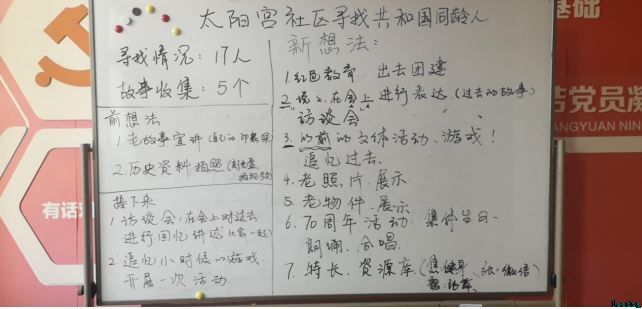 太阳宫社区寻找共和国同龄人
寻找情况：17人
故事收集：5个
前想法
1.老故事宣讲
2.历史资料拍照
接下来
1.访谈会：在会上对过去
进行回忆讲述
2.追忆小时候的游戏
开展一次活动
新想法：
1.红色教育 出去团建
2.说 在会上进行表达（过去的故事）
访谈会
3.以前的文体活动、游戏！
追忆过去、
4.老照片.展示
5.老物件.展示
6.70周年活动.集体生日、
朗诵、合唱
7.特长.资源库
基础
洁党员
ANGYUAN NING
有话